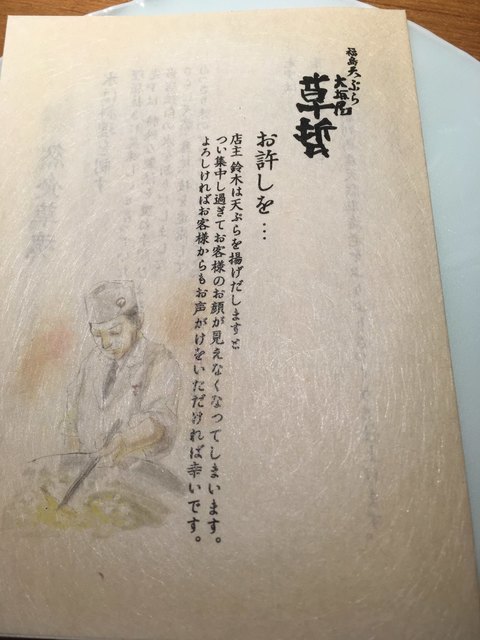 福島天ぷら
大坂屋
草哲
お許しを…
店主 鈴木は天ぷらを揚げだしますと
つい集中し過ぎてお客様のお顔が見えなくなってしまいます。
よろしければお客様からもお声がけをいただければ幸いです。